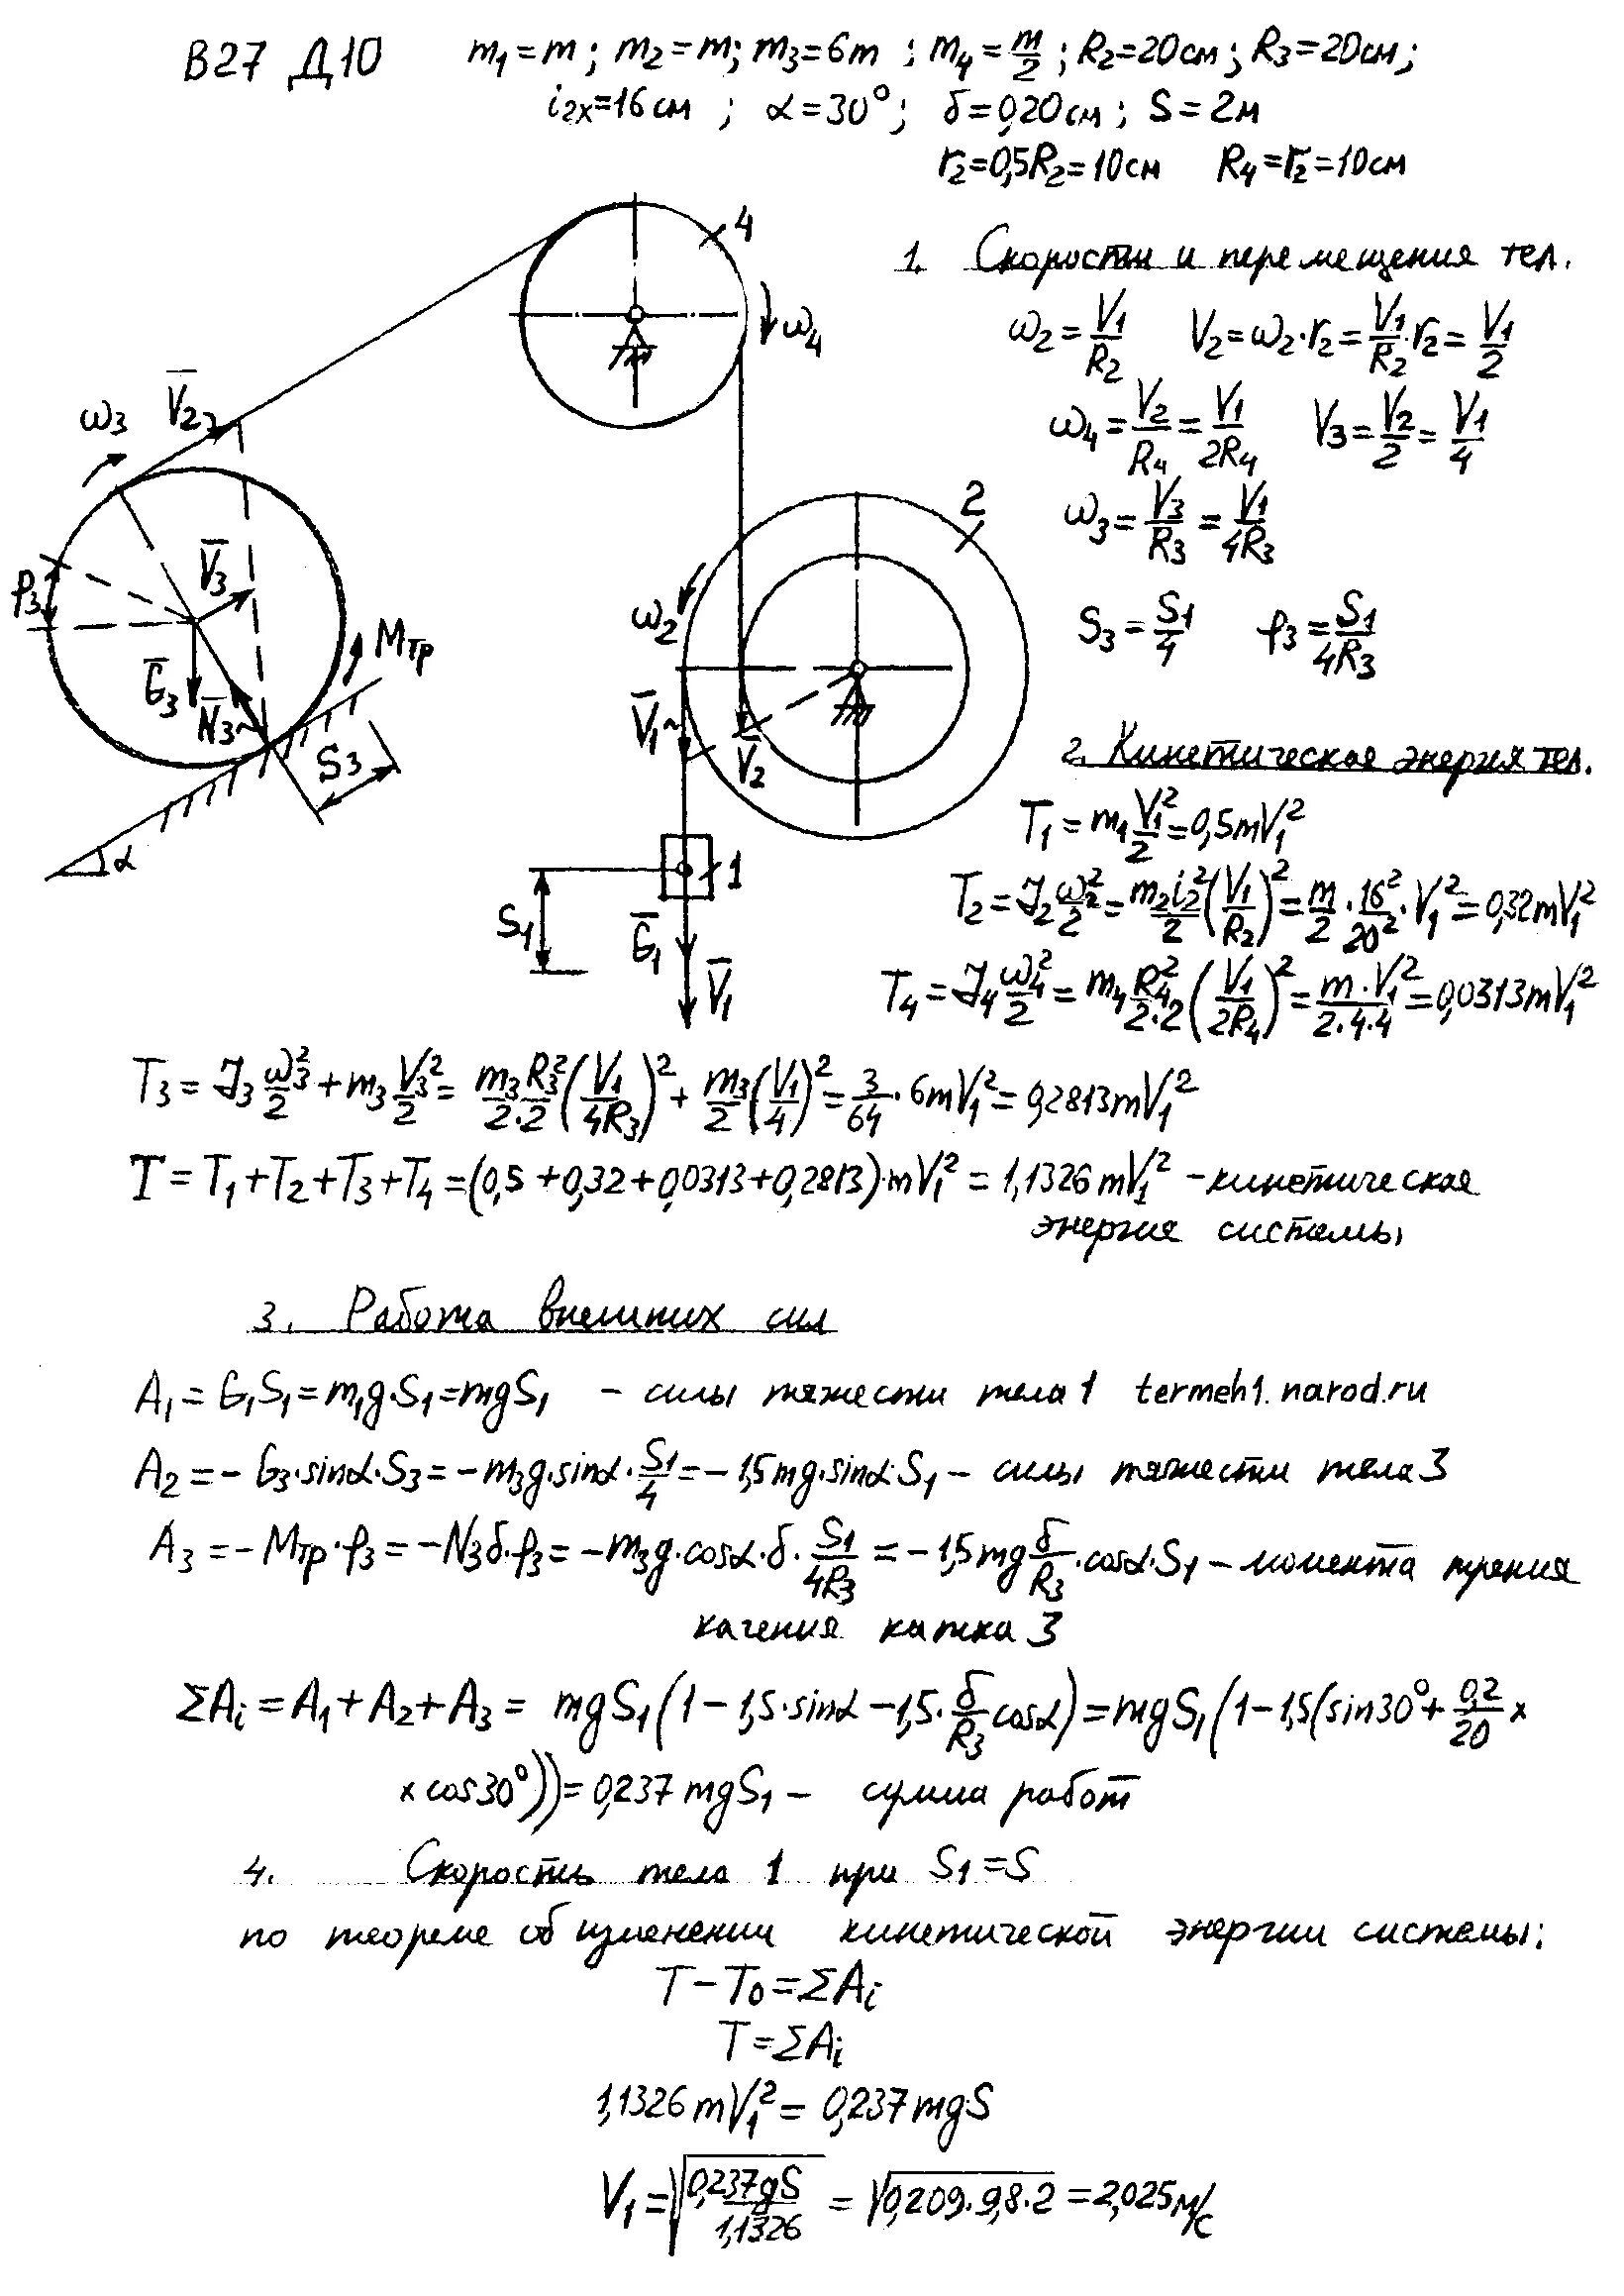 В27 Д10 m₁=m; m₂=m; m₃=6m; m₄=m/2; R₂=20см; R₃=20см;
i₂ₓ=16см; α=30°; δ=0,20см; S=2м
r₂=0,5R₂=10см R₄=r₂=10см
1. Скорости и перемещения тел.
ω₂=V₁/R₂ V₂=ω₂·r₂=V₁/R₂·r₂=V₁/2
ω₄=V₂/R₄=V₁/2R₄ V₃=V₂/2=V₁/4
ω₃=V₃/R₃=V₁/4R₃
S₃=S₁/4 φ₃=S₁/4R₃
4
ω₄
ω₃
V̅₂
V̅₃
φ₃
G̅₃
N̅₃
Mтр
S₃
α
2
ω₂
V̅₁
V̅₂
1
S₁
G̅₁
V̅₁
2. Кинетическая энергия тел.
T₁=m₁V₁²/2=0,5mV₁²
T₂=J₂ω₂²/2=m₂i₂²/2(V₁/R₂)²=m/2·16²/20²·V₁²=0,32mV₁²
T₄=J₄ω₄²/2=m₄R₄²/2·2(V₁/2R₄)²=m·V₁²/2·4·4=0,0313mV₁²
T₃=J₃ω₃²/2+m₃V₃²/2=m₃R₃²/2·2(V₁/4R₃)²+m₃/2(V₁/4)²=3/64·6mV₁²=0,2813mV₁²
T=T₁+T₂+T₃+T₄=(0,5+0,32+0,0313+0,2813)·mV₁²=1,1326mV₁² -кинетическая
энергия системы
3. Работа внешних сил
A₁=G₁S₁=m₁g·S₁=mgS₁ - силы тяжести тела 1 termeh1.narod.ru
A₂=-G₃·sinα·S₃=-m₃g·sinα·S₁/4=-1,5mg·sinα·S₁ - силы тяжести тела 3
A₃=-Mтр·φ₃=-N₃δ·φ₃=-m₃g·cosα·δ·S₁/4R₃=-1,5mgδ/R₃·cosα·S₁ - момента трения
качения катка 3
ΣAᵢ=A₁+A₂+A₃=mgS₁(1-1,5·sinα-1,5·δ/R₃cosα)=mgS₁(1-1,5(sin30°+0,2/20×
×cos30°))=0,237mgS₁ - сумма работ
4. Скорость тела 1 при S₁=S
по теореме об изменении кинетической энергии системы:
T-T₀=ΣAᵢ
T=ΣAᵢ
1,1326mV₁²=0,237mgS
V₁=√(0,237gS/1,1326)=√(0,209·9,8·2)=2,025м/с